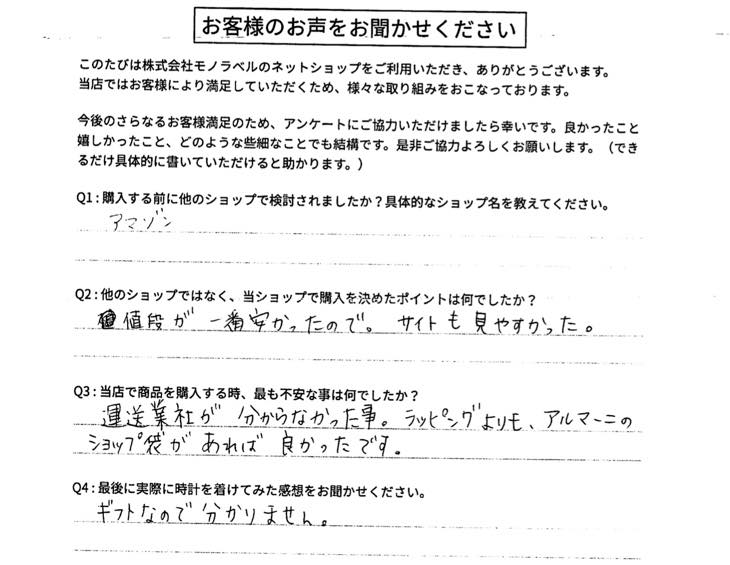 お客様のお声をお聞かせください
このたびは株式会社モノラベルのネットショップをご利用いただき、ありがとうございます。
当店ではお客様により満足していただくため、様々な取り組みをおこなっております。
今後のさらなるお客様満足のため、アンケートにご協力いただけましたら幸いです。良かったこと
嬉しかったこと、どのような些細なことでも結構です。是非ご協力よろしくお願いします。（でき
るだけ具体的に書いていただけると助かります。）
Q1：購入する前に他のショップで検討されましたか？具体的なショップ名を教えてください。
アマゾン
Q2：他のショップではなく、当ショップで購入を決めたポイントは何でしたか？
値段が一番安かったので。サイトも見やすかった。
Q3：当店で商品を購入する時、最も不安な事は何でしたか？
運送業社が分からなかった事。ラッピングよりも、アルマーニの
ショップ袋があれば良かったです。
Q4：最後に実際に時計を着けてみた感想をお聞かせください。
ギフトなので分かりません。